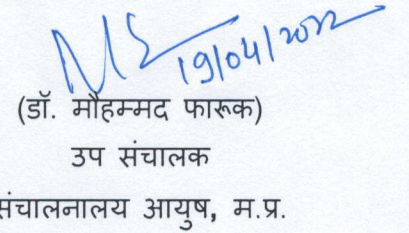 19/04/2022
(डॉ. मौहम्मद फारूक)
उप संचालक
संचालनालय आयुष, म.प्र.